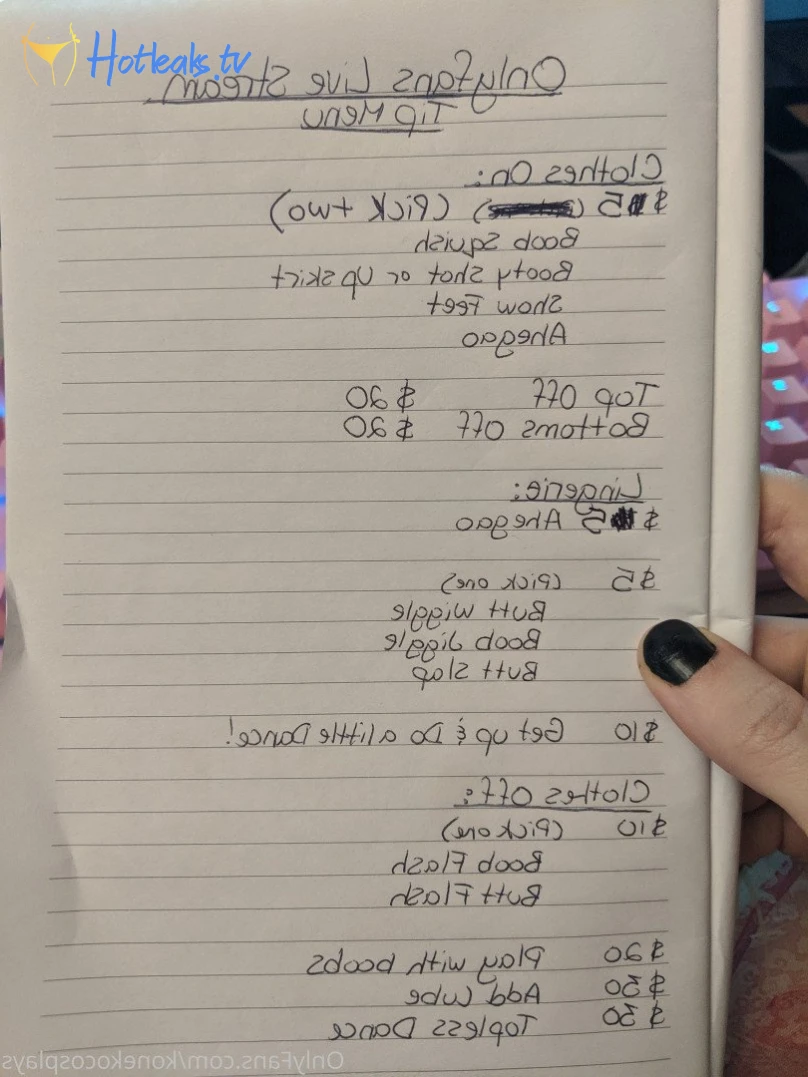 Hotleaks.tv
OnlyFans Live Stream
Tip Menu
Clothes On:
$5 (Pick two)
Boob Squish
Booty Shot or Up Skirt
Show Feet
Ahegao
Top Off $20
Bottoms Off $20
Lingerie:
$5 Ahegao
$5 (Pick one)
Butt Wiggle
Boob Jiggle
Butt Slap
$10 Get up & Do a little Dance!
Clothes Off:
$10 (Pick one)
Boob Flash
Butt Flash
$20 Play with boobs
$30 Add Lube
$30 Topless Dance
OnlyFans.com/konekocosplays